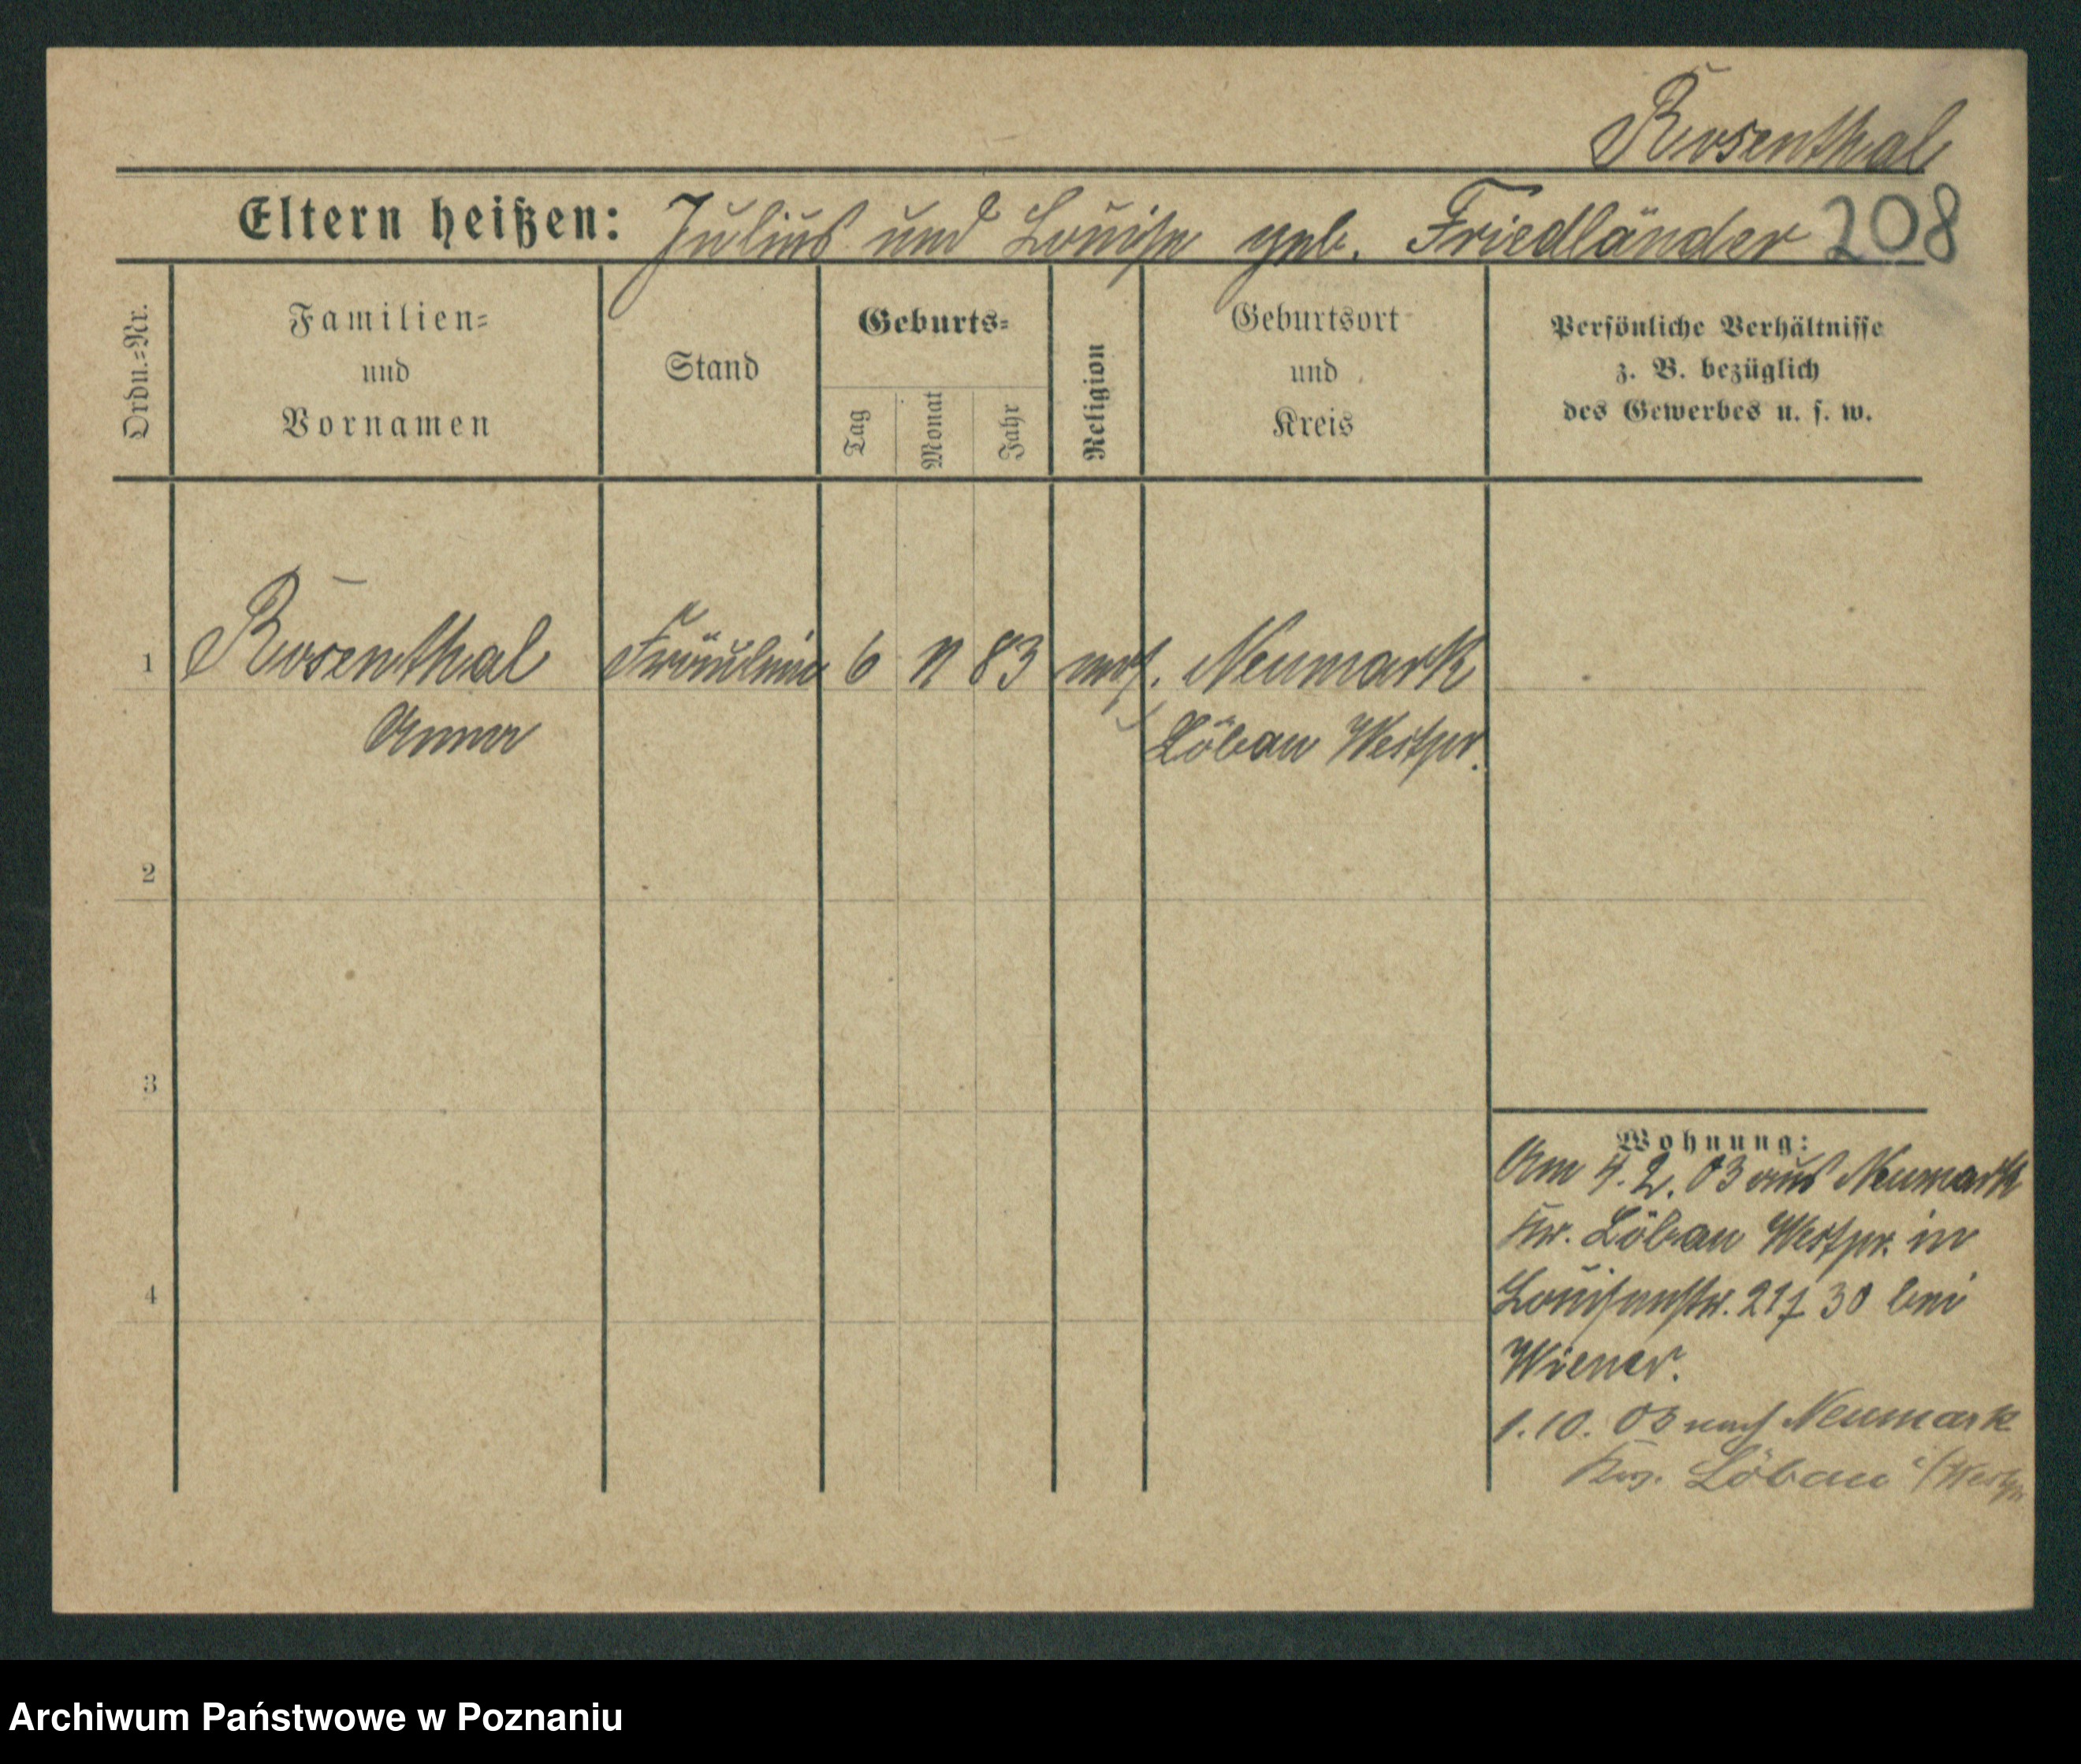 Rosenthal
Eltern heißen: Julius und Louise geb. Friedländer 208
Ordn.=Nr.
Familien=
und
Vornamen
Stand
Geburts=
Tag
Monat
Jahr
Religion
Geburtsort
und
Kreis
Persönliche Verhältnisse
z. B. bezüglich
des Gewerbes u. s. w.
1 Rosenthal Fräulein 6 83 mos. Neumark
Anna Löbau Westpr.
2
3
4
Wohnung:
Am 4. 2. 03 aus Neumark
Kr. Löbau Westpr. in
Louisenstr. 30 bei
Wiener.
1. 10. 03 nach Neumark
Krs. Löbau /Westpr
Archiwum Państwowe w Poznaniu